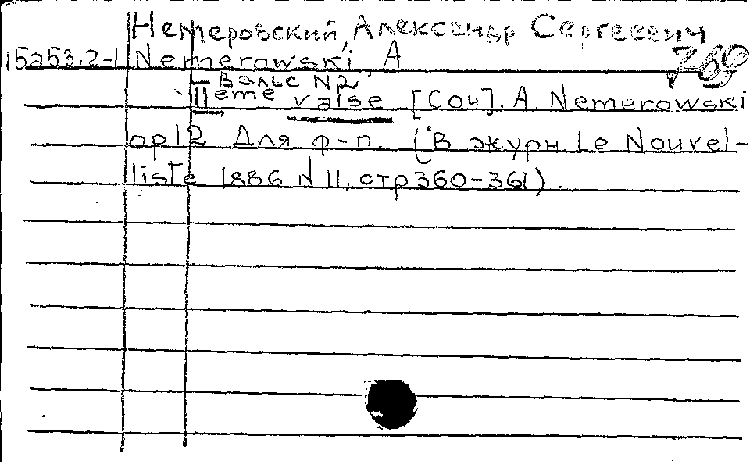 Немеровский, Александр Сергеевич
15253.2-1 Nemerowski A 789
Вальс N2
IIeme valse [Соч]. A. Nemerowski
op12 Для ф-п. (В журн Le Nouvel-
liste 1886 N 11, стр 360-361).